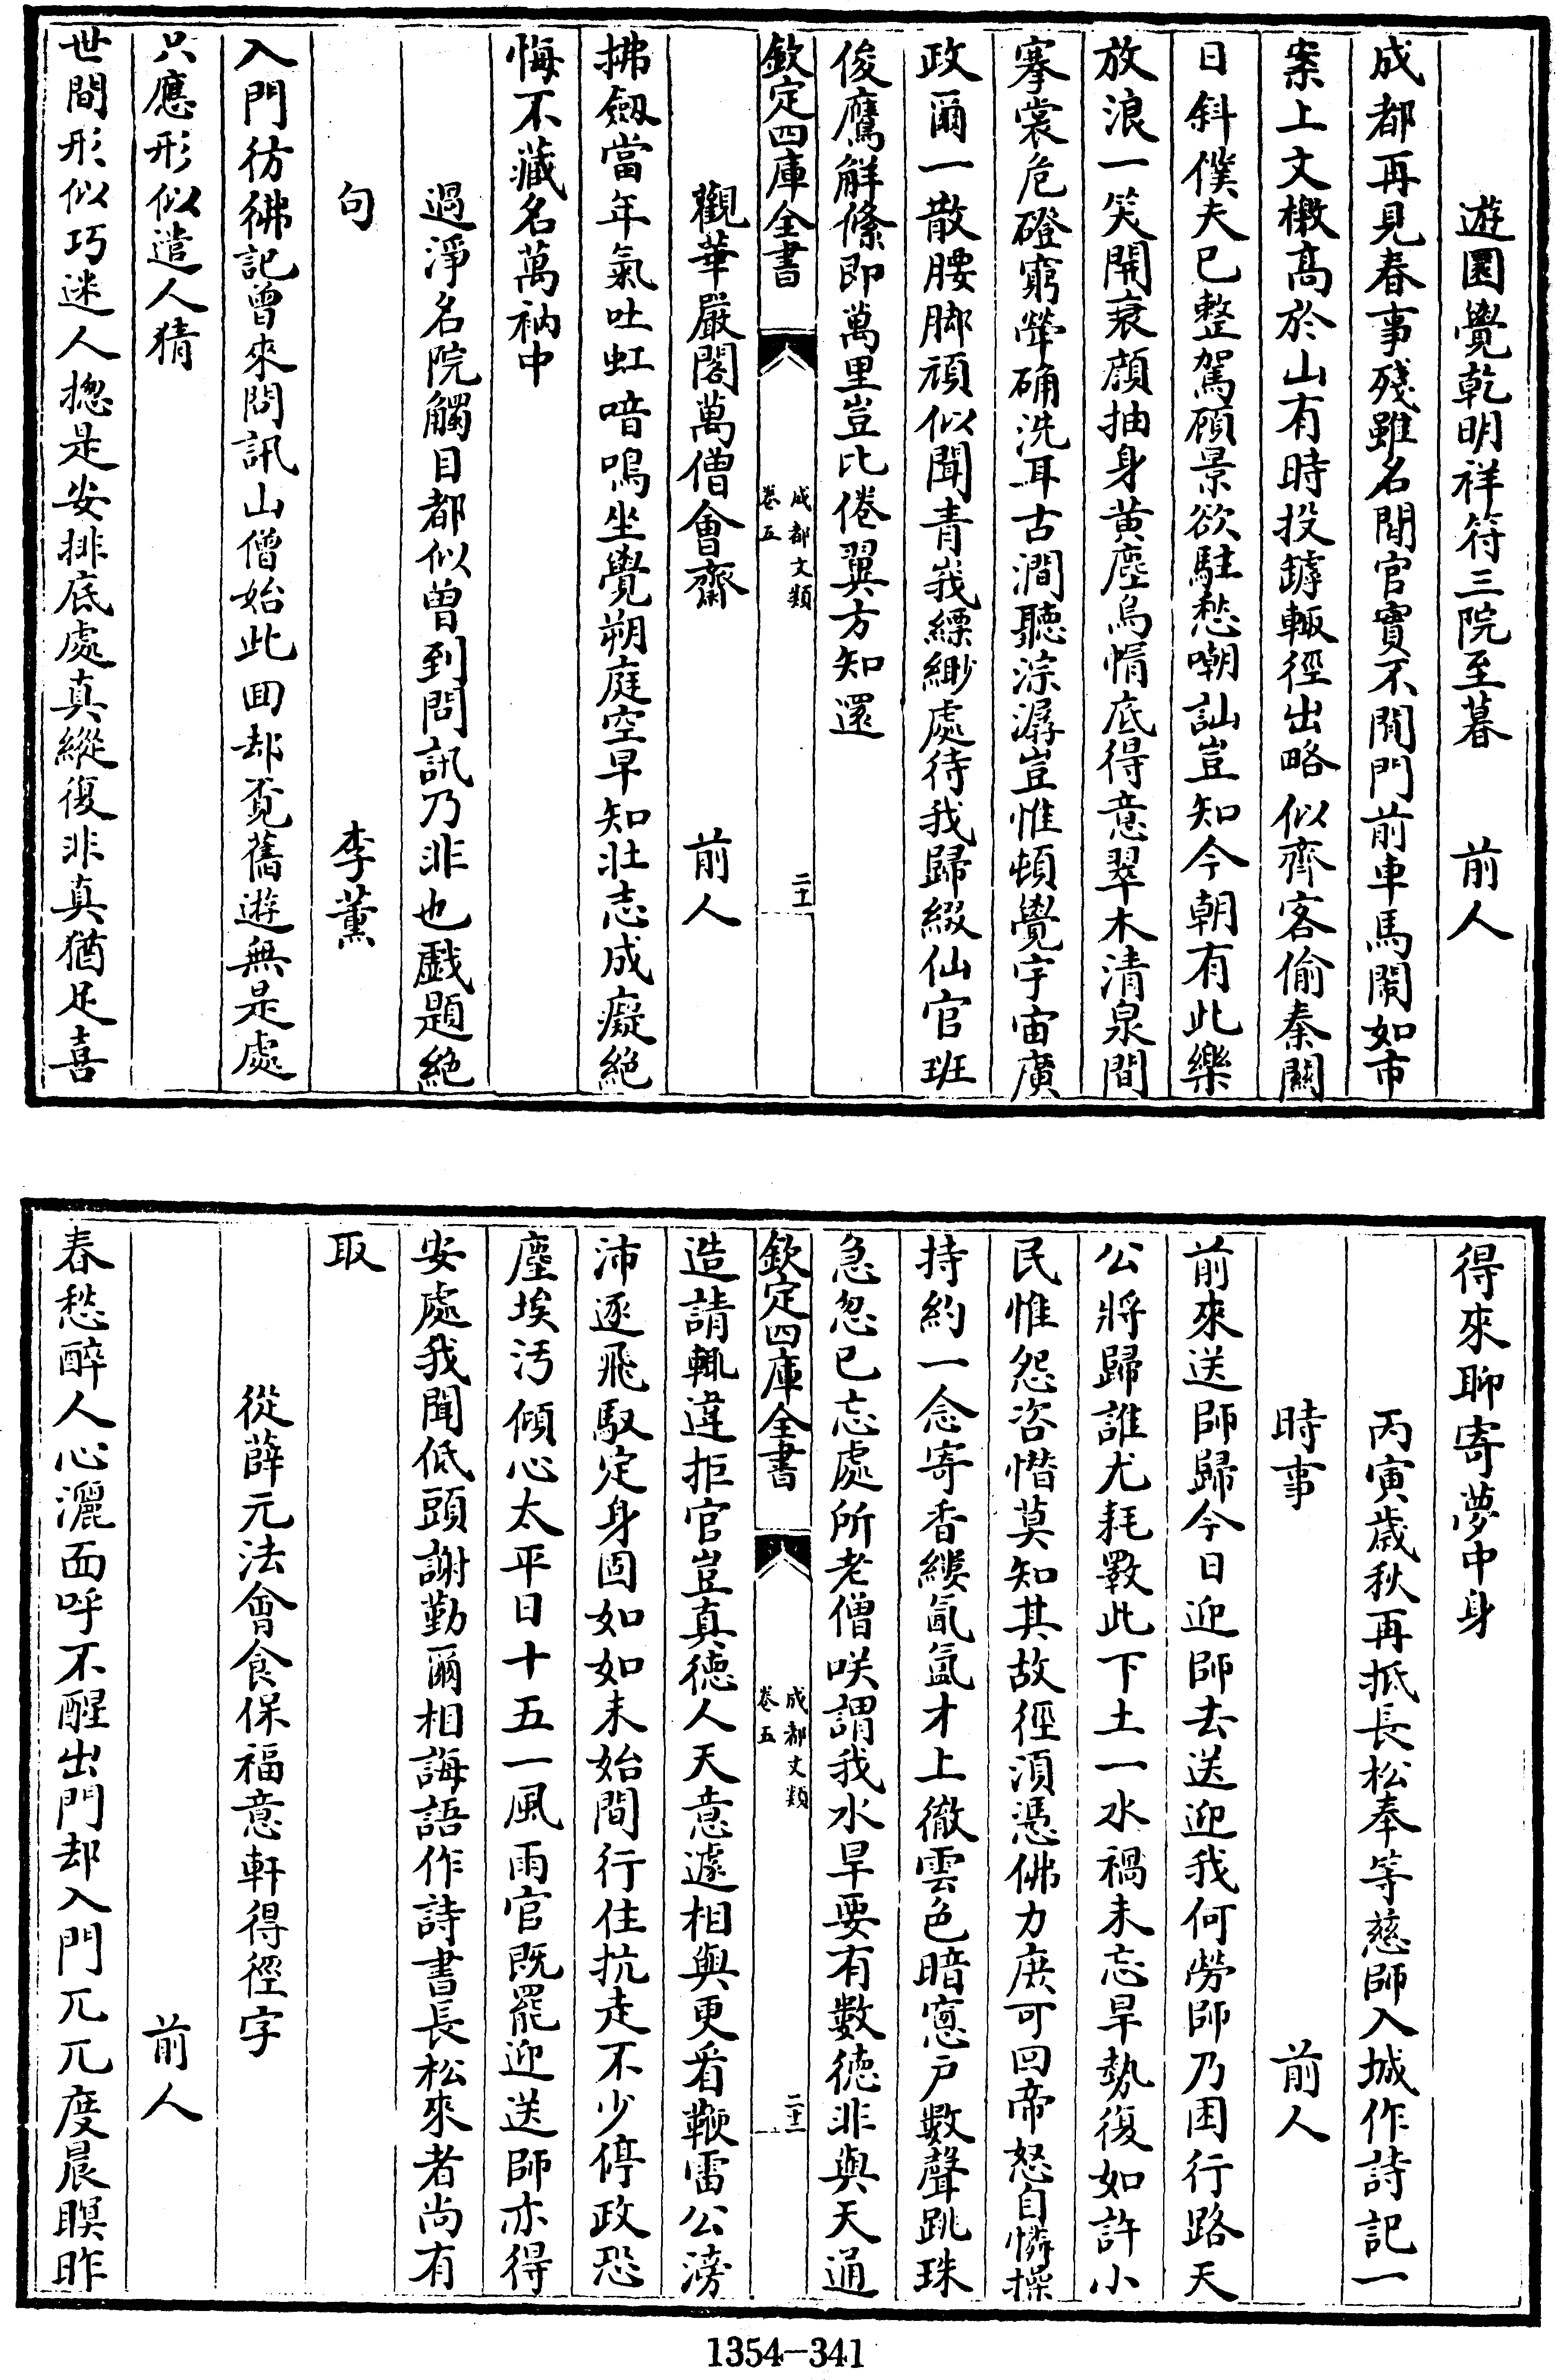 遊圜覺乾明祥符三院至暮　前人
成都再見春事殘雖名閒官實不閒門前車馬鬧如市
案上文檄髙於山有時投罅輒徑出略似齊客偷秦關
日斜僕夫已整駕顧景欲駐愁嘲訕豈知今朝有此樂
放浪一笑開衰顔抽身黄塵烏帽底得意翠木清泉間
搴裳危磴窮犖确洗耳古澗聽淙潺豈惟頓覺宇宙廣
政爾一散腰脚頑似聞青峩縹緲處待我歸綴仙官班
俊鷹解絛即萬里豈比倦翼方知還
欽定四庫全書
成都文類
卷五
二十
觀華嚴閣萬僧會齋　前人
拂劔當年氣吐虹喑嗚坐覺朔庭空早知壯志成癡絶
悔不藏名萬衲中
過淨名院觸目都似曾到問訊乃非也戲題絶
句　李薰
入門彷彿記曾來問訊山僧始此囬却覔舊遊無是處
只應形似遣人猜
世間形似巧迷人揔是安排底處真縱復非真猶足喜
得來聊寄夢中身
丙寅歲秋再抵長松奉等慈師入城作詩記一
時事　前人
前來送師歸今日迎師去送迎我何勞師乃困行路天
公將歸誰尤耗斁此下土一水禍未忘旱勢復如許小
民惟怨咨憯莫知其故徑須憑佛力庶可回帝怒自憐操
持約一念寄香縷氤氲才上徹雲色暗窻户數聲跳珠
急忽已忘處所老僧咲謂我水旱要有數徳非與天通
欽定四庫全書
成都文類
卷五
二十一
造請輒違拒官豈真徳人天意遽相與更看鞭雷公滂
沛逐飛馭定身固如如未始間行住抗走不少停政恐
塵埃汚傾心太平日十五一風雨官既罷迎送師亦得
安處我聞低頭謝勤爾相誨語作詩書長松來者尚有
取
從薛元法會食保福意軒得徑字
前人
春愁醉人心灑面呼不醒出門却入門兀兀度晨瞑昨
1354-341